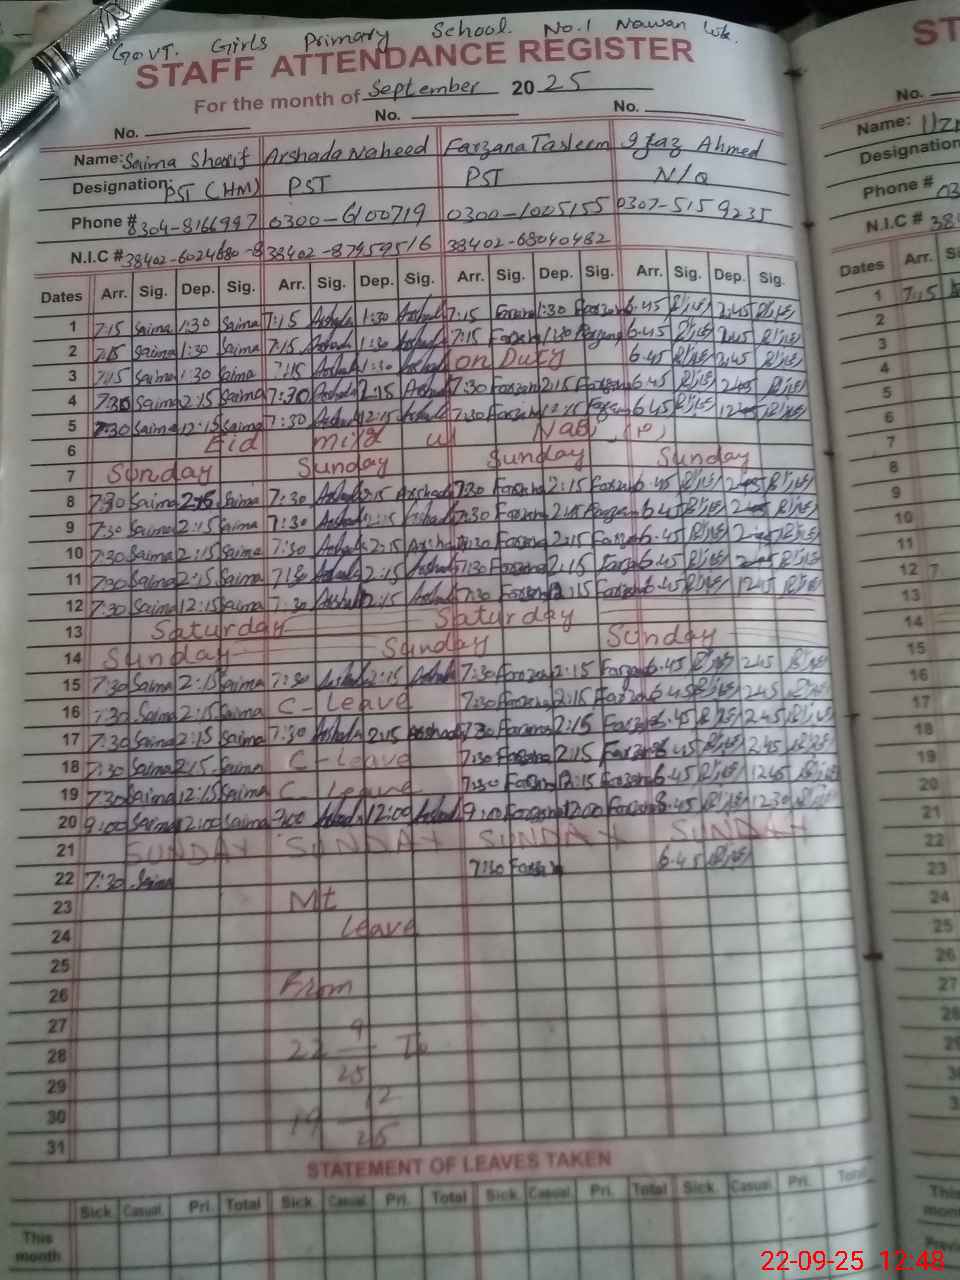 GOVT. Girls Primary School. No.1 Nawan
STAFF ATTENDANCE REGISTER
For the month of September 2025
No. No. No.
Name: Saima Sharif Arshada Naheed Farzana Tasleem Ijaz Ahmed
Designation: PST (HM) PST PST N/Q
Phone # 0304-8166997 0300-6100719 0300-1005155 0307-5159235
N.I.C # 38402-6024680-8 38402-87959516 38402-68040482
Dates Arr. Sig. Dep. Sig. Arr. Sig. Dep. Sig. Arr. Sig. Dep. Sig. Arr. Sig. Dep. Sig.
1 7:15 Saima 1:30 Saima 7:15 Arshada 1:30 Arshada 7:15 Farzana 1:30 Farzana 6:45 2:45
2 7:15 Saima 1:30 Saima 7:15 Arshada 1:30 Arshada 7:15 Farzana 1:30 Farzana 6:45 2:45
3 7:15 Saima 1:30 Saima 7:15 Arshada 1:30 Arshada on Duty 6:45 2:45
4 7:30 Saima 2:15 Saima 7:30 Arshada 2:15 Arshada 7:30 Farzana 2:15 Farzana 6:45
5 7:30 Saima 12:15 Saima 7:30 Arshada 12:15 Arshada 7:30 Farzana Farzana 6:45
6 Eid mild ul Nabi
7 Sunday Sunday Sunday Sunday
8 7:30 Saima 2:15 Saima 7:30 Arshada 2:15 Arshada 7:30 Farzana 2:15 Farzana 6:45
9 7:30 Saima 2:15 Saima 7:30 Arshada 2:15 Arshada 7:30 Farzana 2:15 Farzana 6:45
10 7:30 Saima 2:15 Saima 7:30 Arshada 2:15 Arshada 7:30 Farzana 2:15 Farzana 6:45
11 7:30 Saima 2:15 Saima Arshada 2:15 Arshada 7:30 Farzana 2:15 Farzana 6:45
12 7:30 Saima 12:15 Saima 7:30 Arshada 12:15 Arshada 7:30 Farzana 12:15 Farzana 6:45 1245
13 Saturday Saturday
14 Sunday Sunday Sunday
15 7:30 Saima 2:15 Saima 7:30 Arshada 2:15 Arshada 7:30 Farzana 2:15 Farzana 6:45 245
16 7:30 Saima 2:15 Saima C-Leave 7:30 Farzana 2:15 Farzana 6:45 245
17 7:30 Saima 2:15 Saima 7:30 Arshada 2:15 Arshada 7:30 Farzana 2:15 Farzana 6:45 245
18 7:30 Saima 2:15 Saima C-Leave 7:30 Farzana 2:15 Farzana 6:45 245
19 7:30 Saima 12:15 Saima C Leave 7:30 Farzana 12:15 Farzana 6:45 1245
20 9:00 Saima 12:00 Saima 9:00 Arshada 12:00 Arshada 9:00 Farzana 12:00 Farzana 8:45 1230
21 SUNDAY SUNDAY SUNDAY SUNDAY
22 7:30 Saima 7:30 Farzana 6:45
23 Mt
24 Leave
25
26 From
27 9
28 22 To
29 25
30 19 12
31 25
STATEMENT OF LEAVES TAKEN
Sick Casual Pri. Total Sick Casual Pri. Total Sick Casual Pri. Total Sick Casual Pri. Total
This month
ST
No.
Name:
Designation
Phone # 03
N.I.C # 38
Dates Arr.
1 7:15
2
3
4
5
6
7
8
9
10
11
12 7
13
14
15
16
17
18
19
20
21
22
23
24
25
26
27
28
This
22-09-25 12:48